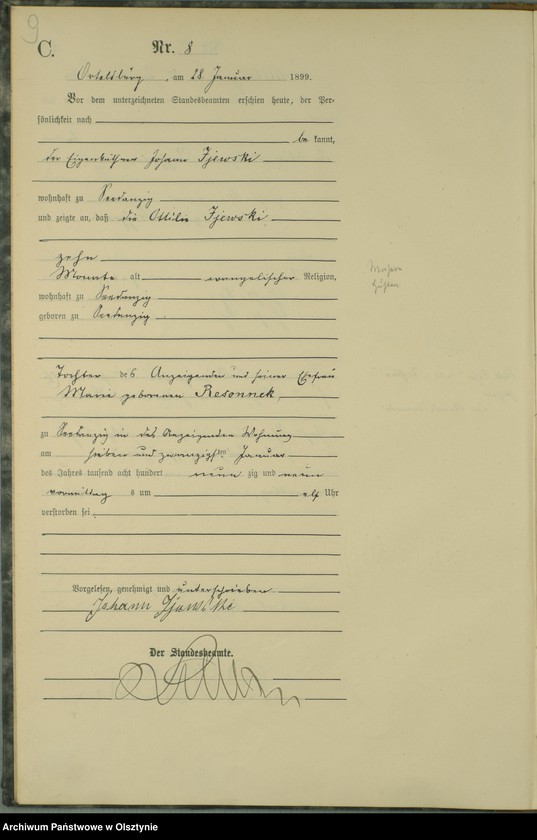 9
C.
Nr. 8
Ortelsburg, am 28 Januar 1899.
Vor dem unterzeichneten Standesbeamten erschien heute, der Per-
sönlichkeit nach
be kannt,
der Eigenkäthner Johann Jjewski
wohnhaft zu Seedanzig
und zeigte an, daß die Ottilie Jjewski
zehn
Monate alt evangelischer Religion,
wohnhaft zu Seedanzig
geboren zu Seedanzig
Tochter des Anzeigenden und seiner Ehefrau
Marie geborenen Resonnek
zu Seedanzig in des Anzeigenden Wohnung
am sieben und zwanzigsten Januar
des Jahres tausend acht hundert neun zig und neun
vormittag s um elf Uhr
verstorben sei.
Vorgelesen, genehmigt und unterschrieben
Johann Jjewski
Der Standesbeamte.
Archiwum Państwowe w Olsztynie